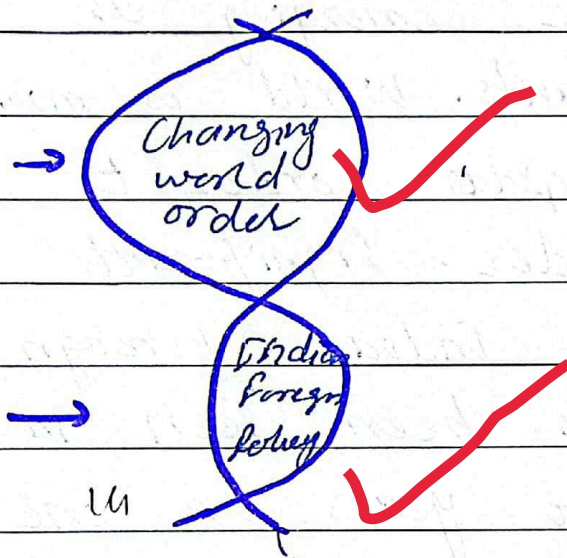 Changing
world
order
Indian
foreign
Policy